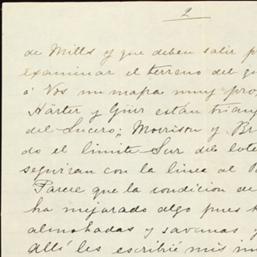 2
de Mills y que deben salir p
examinar el terreno del qu
á Vos mi mapa muy pro
Härter y Güir están trian
del Lucero; Morrison y Br
do el limite Sur del lote
seguiran con la linea al P
Parece que la condicion de
ha mejorado algo pues t
almohadas y savanas y
Allí les escribié mis in